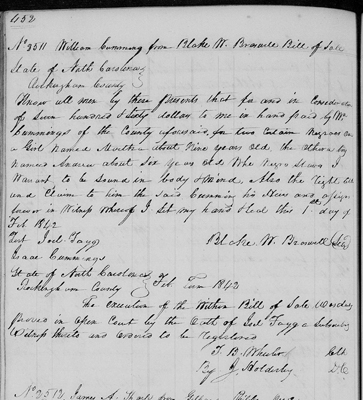 452
No 2511 William Cumming from Blake W. Braswell Bill of Sale
State of North Carolina
Rockingham County
Know all men by these presents that for and in Consideration
of Seven hundred & Sixty dollars to me in hand paid by Wm
Cummings of the County aforesaid for two Certain Negroes one
a Girl Named about Nine years old the other a boy
Named Andrew about Six years old Who Negro Slaves I
Warrant to be Sound in body & Mind, Also the Right title
and Claim to him the said Cumming his Heirs and assigns
forever in Witness Whereof I Set my hand & Seal this 1st day of
Feb 1842
Test Joel Fagg Blake W. Braswell Seal
Isaac Cummings
State of North Carolina
Rockingham County Feb Term 1842
The execution of the Within Bill of Sale Was duly
proved in Open Court by the Oath of Joel Fagg a Subscribing
Witness thereto and ordered to be Registered
T. B. Wheeler Clk
By J Holderby D.C.
No 2512 James A. from